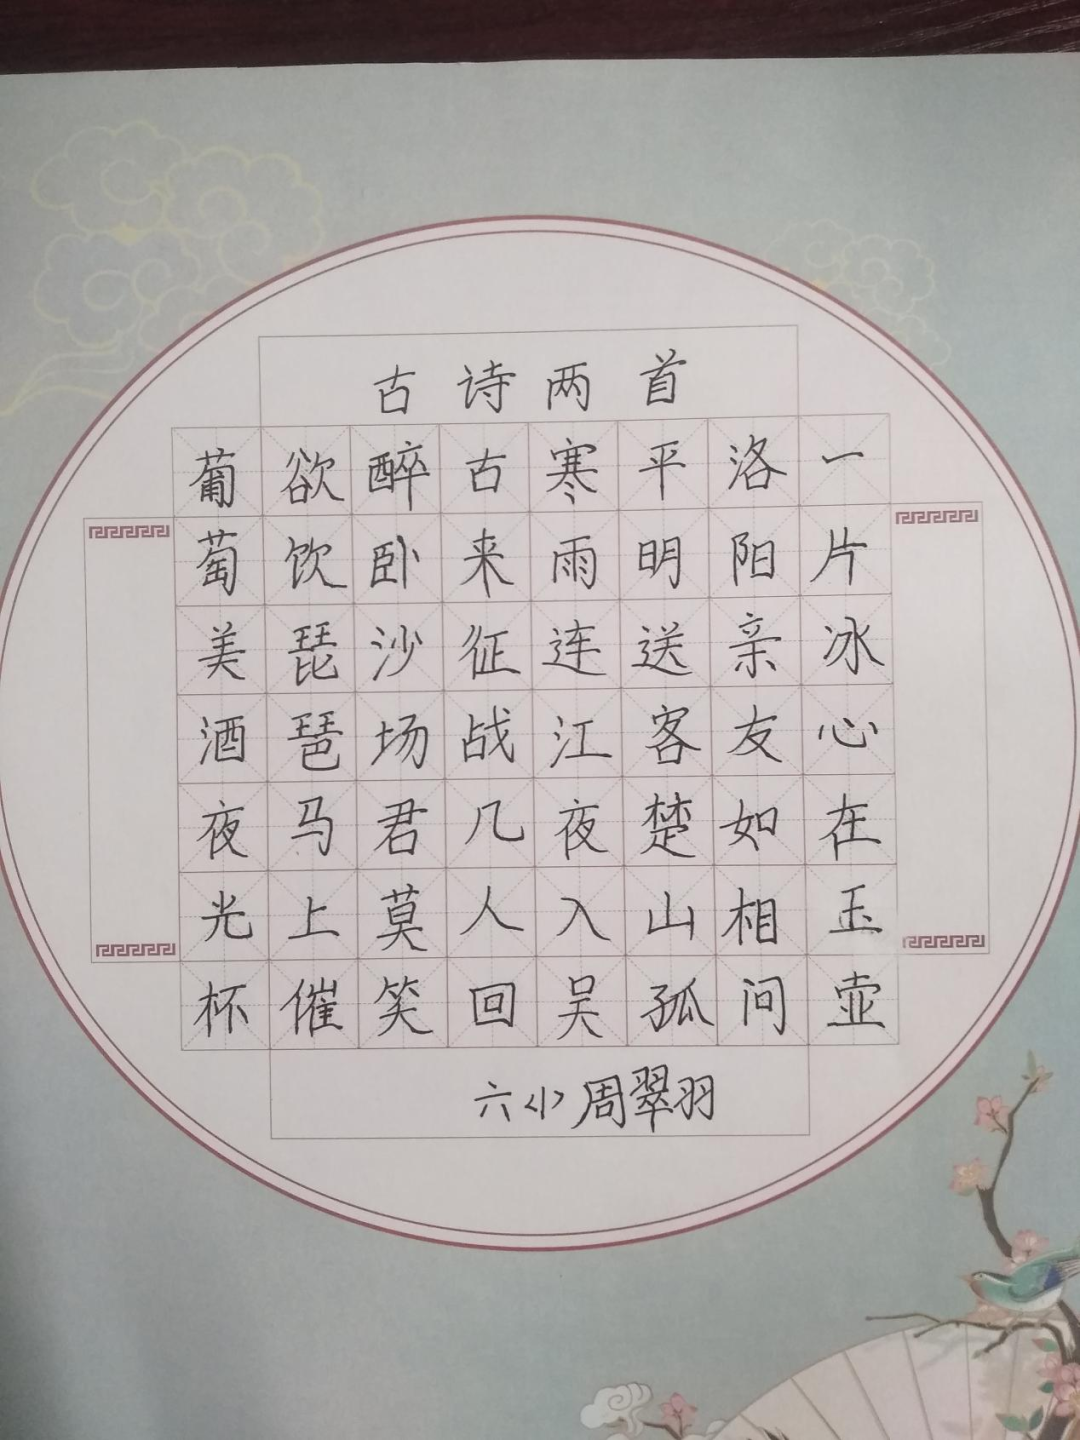 古诗两首
葡萄美酒夜光杯
欲饮琵琶马上催
醉卧沙场君莫笑
古来征战几人回
寒雨连江夜入吴
平明送客楚山孤
洛阳亲友如相问
一片冰心在玉壶
六小周翠羽